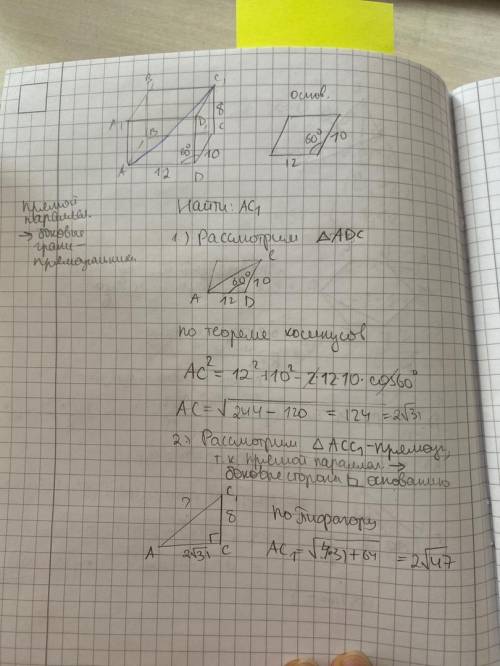 B₁ C₁
A₁ D₁ 8
B C
60° 10
A 12 D
основ.
60° 10
12
прямой
паралл.
→ боковые
грани –
прямоугольники
Найти: AC₁
1) Рассмотрим △ADC
C
60° 10
A 12 D
по теореме косинусов
AC² = 12² + 10² - 2·12·10·cos60°
AC = √244 - 120 = 124 = 2√31
2) Рассмотрим △ACC₁ - прямоуг,
т.к прямой параллел. →
боковые стороны ⊥ основанию
C₁
? 8
A 2√31 C
по Пифагору
AC₁ = √4·31+64 = 2√47